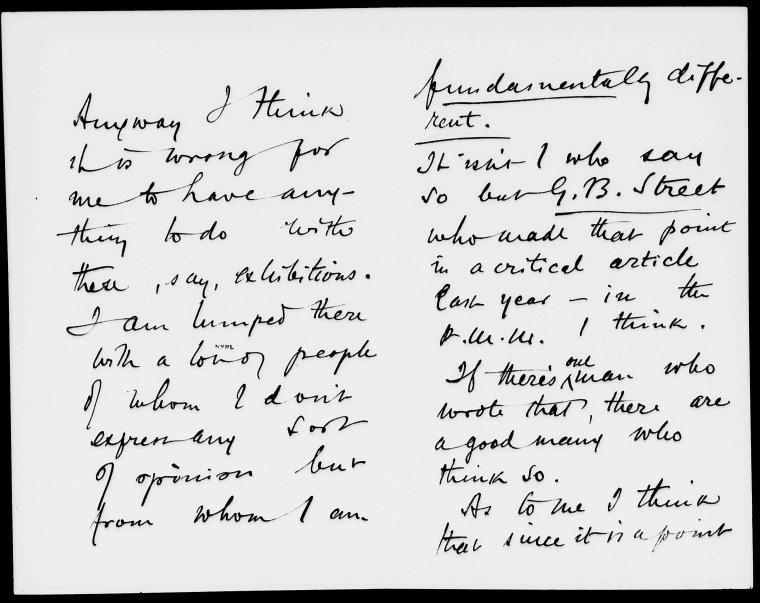 Anyway I think
it is wrong for
me to have any-
thing to do with
these, say, exhibitions.
I am lumped there
with a lot of people
NYPL
of whom I don't
express any sort
of opinion but
from whom I am
fundamentally diffe-
rent.
It isn't I who say
so but G.B. Street
who made that point
in a critical article
last year — in the
P.M.M. I think.
If there's one man who
wrote that, there are
a good many who
think so.
As to me I think
that since it is a point